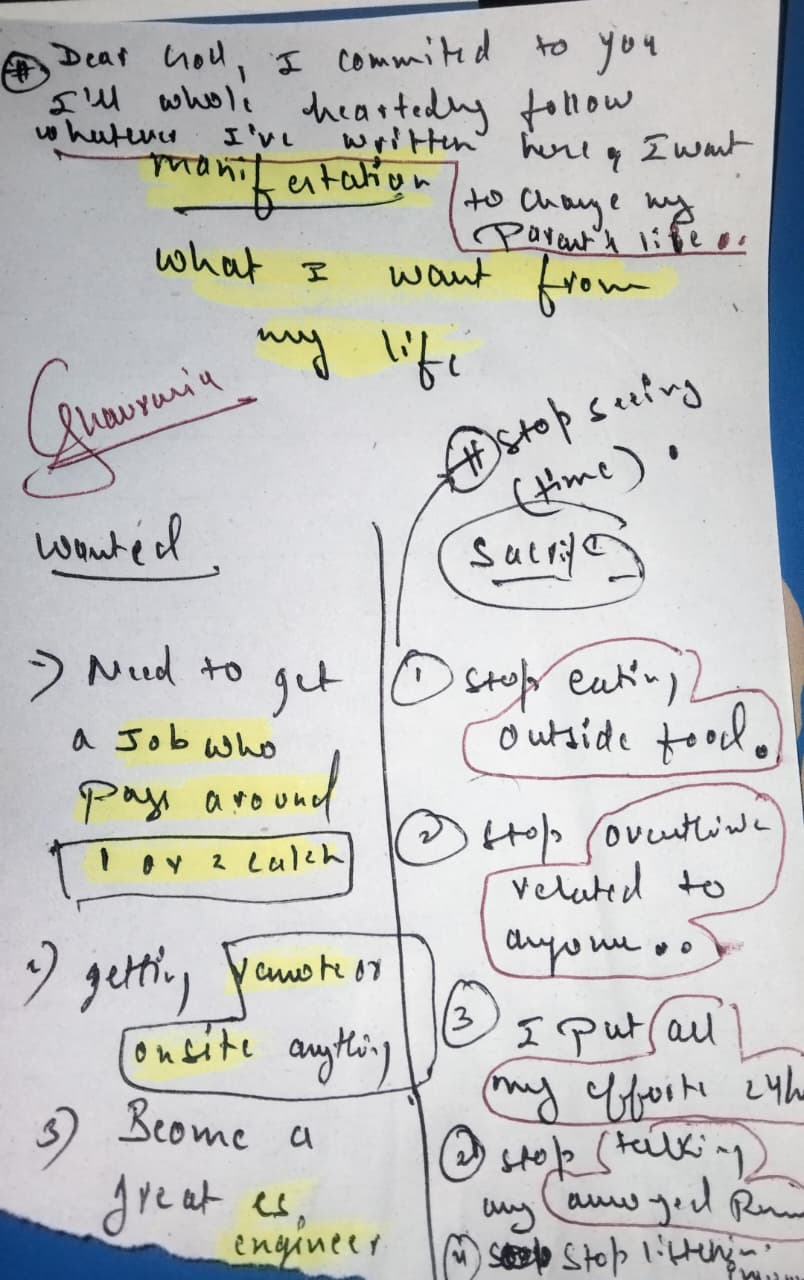 # Dear God, I commited to you
I'll whole heartedly follow
whatever I've written here & I want
to change my
Parent's life..
manifestation
what I want from
my life
wanted
# Stop seeing
(time).
Sacrifice
1) Need to get
a Job who
pays around
1 or 2 lakh
2) getting remote or
onsite anything
3) Beome a
great cs
engineer
1 stop eating
outside food.
2 stop overthink
related to
anyone..
3 I put all
my efforts 24h
stop talking
any
4 stop